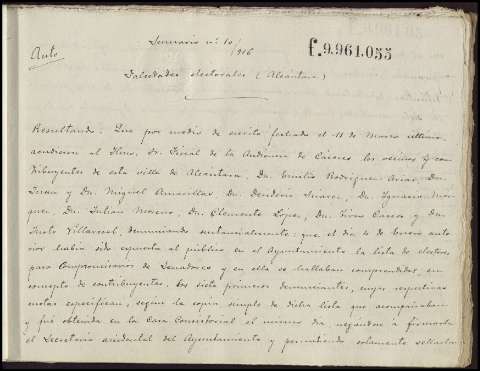 Sumario nº 10/916
f.9.961.055
Auto
Falsedades electorales (Alcántara)
Resultando: Que por medio de escrito fechado el 11 de Marzo último,
acudieron al Ilmo. Sr. Fiscal de la Audiencia de Cáceres los vecinos y con
tribuyentes de esta villa de Alcántara, Dn. Emilio Rodríguez Arias, Dn.
y Dn. Miguel Amarilla, Dn. Desiderio Suarez, Dn. Ignacio
Dn. Julian Moreno, Dn. Clemente Lopez, Dn. y Dn.
Justo Villarroel, denunciando sustancialmente: que el día 4 de Enero
había sido expuesta al público en el Ayuntamiento la lista de electores
para Compromisarios de Senadores y en ella se hallaban comprendidos, en
concepto de contribuyentes, los siete primeros denunciantes, cuyas respectivas
cuotas especifican, según la copia simple de dicha lista que acompañaban
y fué obtenida en la Casa Consistorial el mismo día, negándose á firmarla
el Secretario accidental del Ayuntamiento y permitiendo solamente sellarla